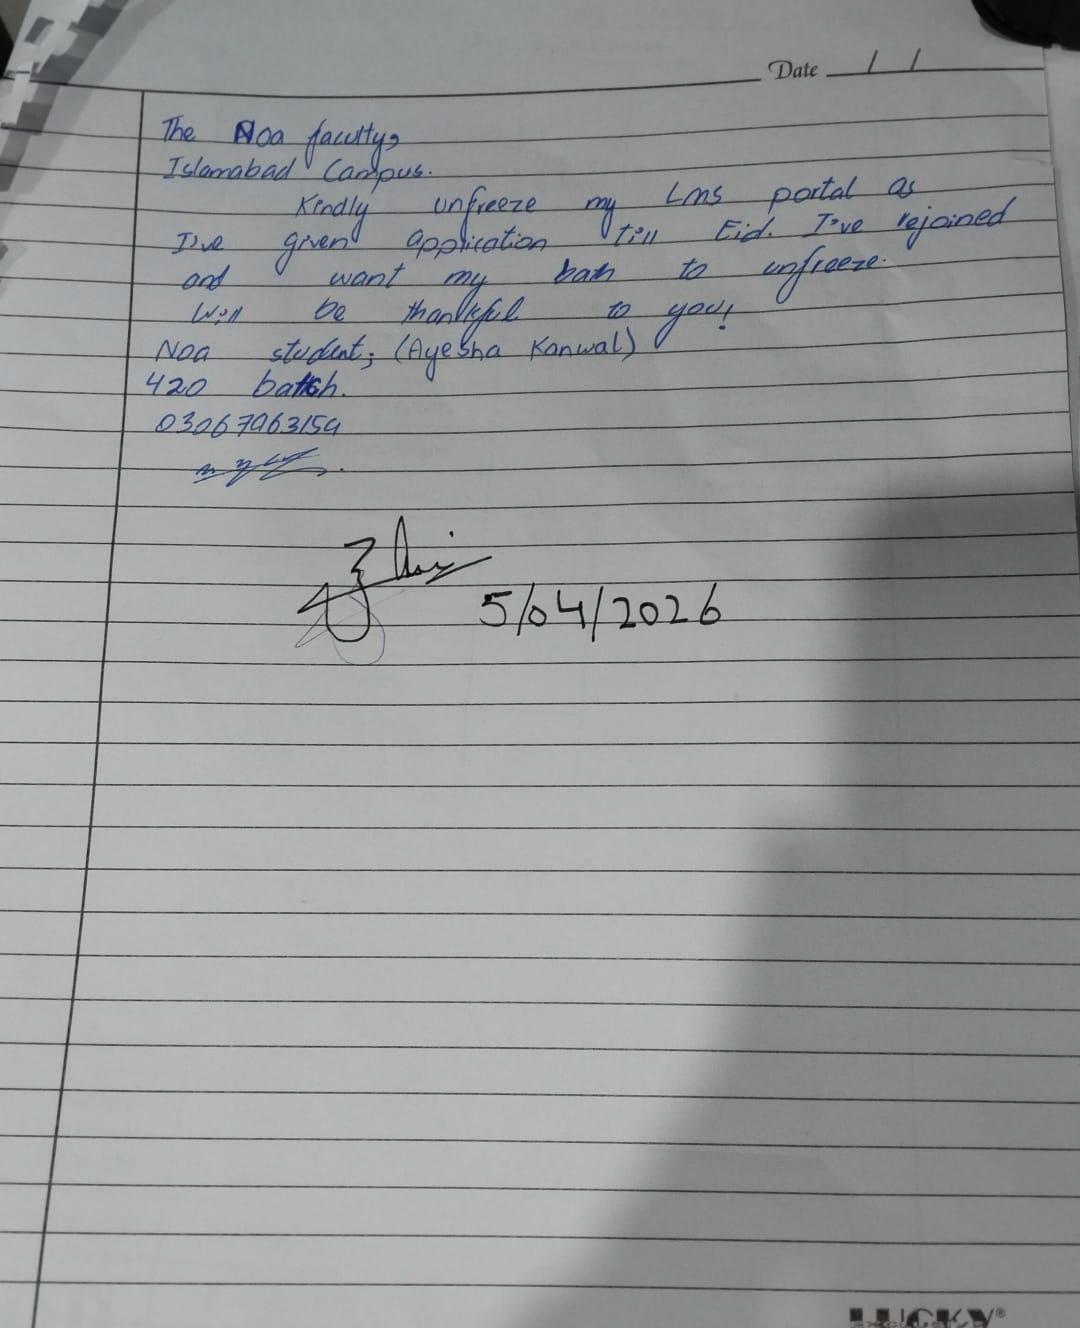 Date / /
The Noa faculty,
Islamabad Campus.
Kindly unfreeze my Lms portal as
I've given application till Eid. I've rejoined
and want my bath to unfreeze.
Will be thankful to you!
Noa student; (Ayesha Kanwal)
420 batch.
03067963159
5/04/2026
LUCKY®